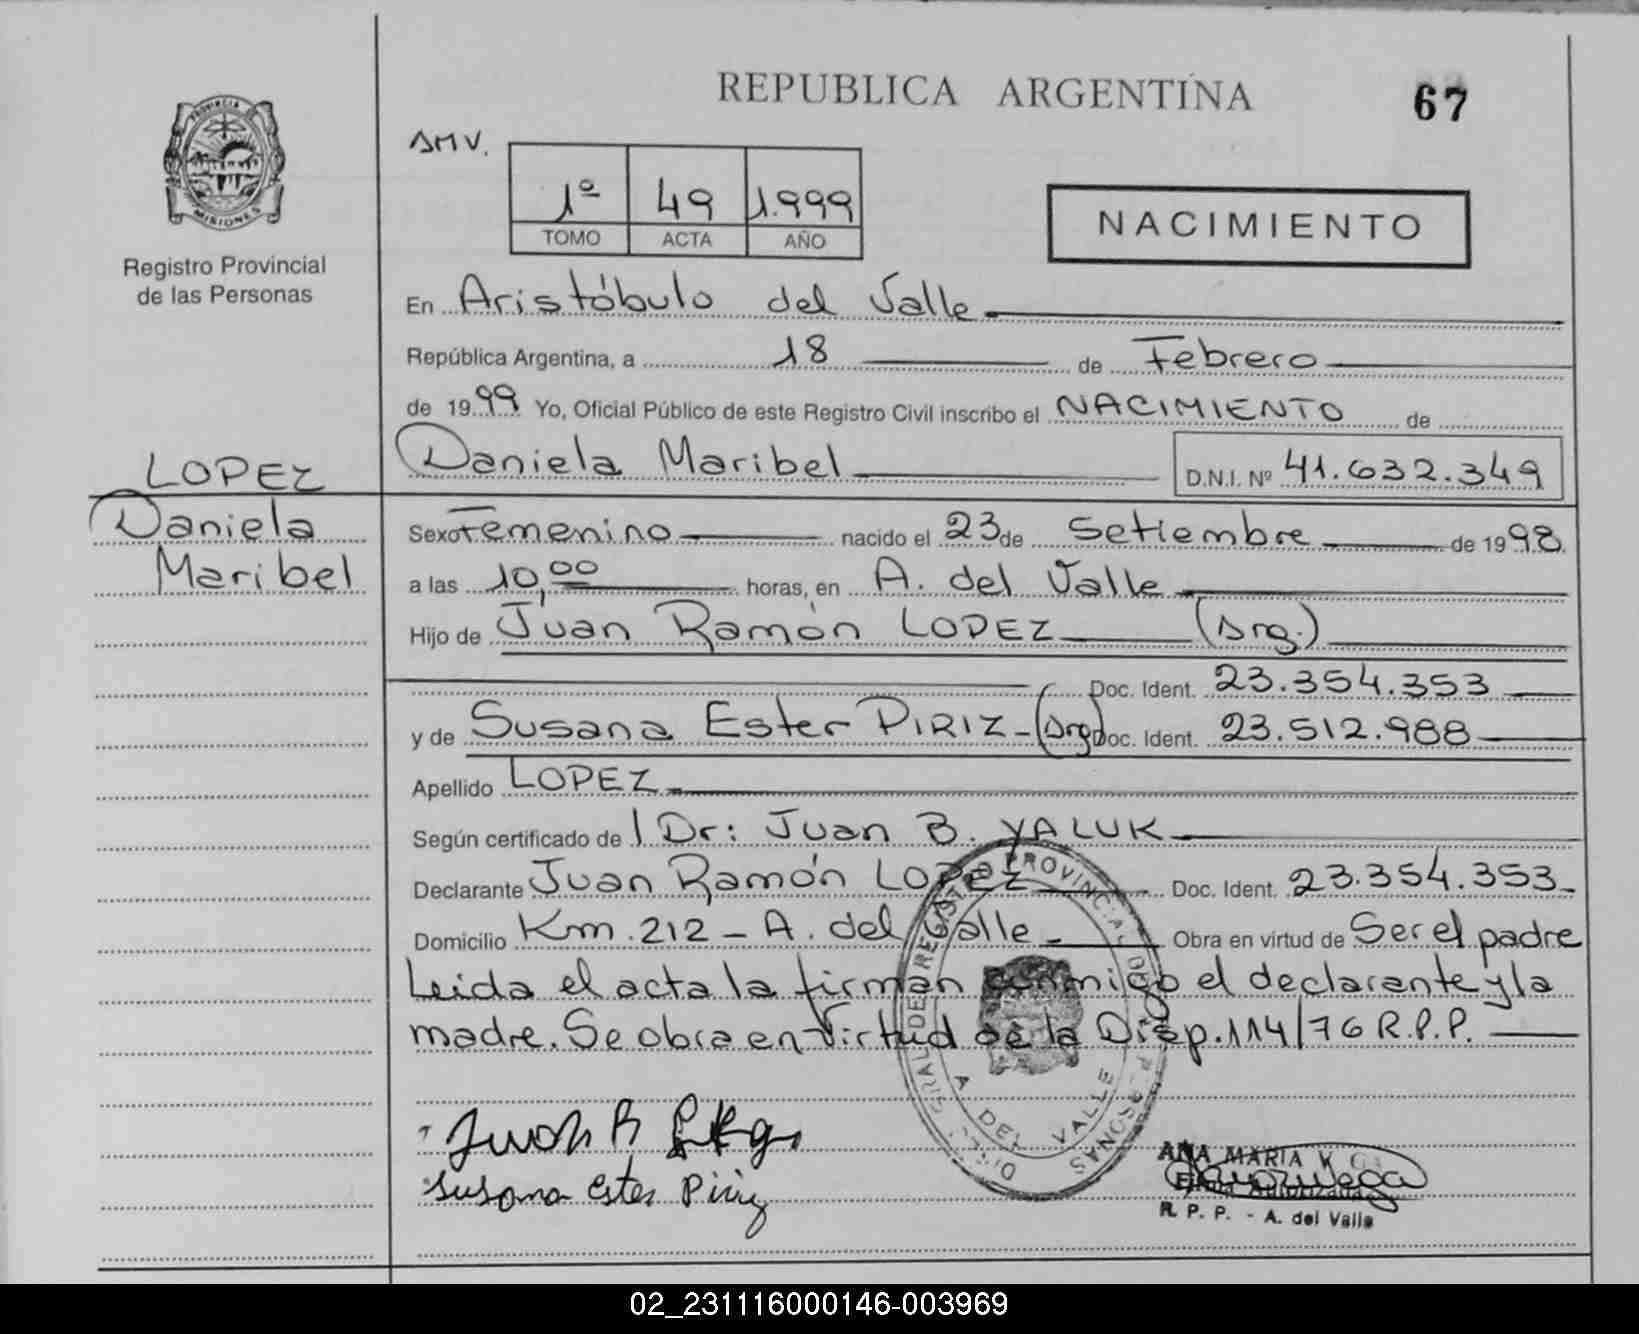 REPUBLICA ARGENTINA
67
PROVINCIA DE
MISIONES
Registro Provincial
de las Personas
AMV.
1º 49 1.999
TOMO ACTA AÑO
NACIMIENTO
En Aristóbulo del Valle
República Argentina, a 18 de Febrero
de 1999 Yo, Oficial Público de este Registro Civil inscribo el NACIMIENTO de
Daniela Maribel D.N.I. Nº 41.632.349
LOPEZ
Daniela
Maribel
Sexo Femenino nacido el 23 de Setiembre de 1998.
a las 10,00 horas, en A. del Valle
Hijo de Juan Ramón LOPEZ (Arg.)
Doc. Ident. 23.354.353
y de Susana Ester PIRIZ - (Arg) Doc. Ident. 23.512.988
Apellido LOPEZ
Según certificado de l Dr: Juan B. YALUK
Declarante Juan Ramón LOPEZ Doc. Ident. 23.354.353
Domicilio Km. 212 - A. del Valle Obra en virtud de Ser el padre
Leida el acta la firman conmigo el declarante y la
madre. Se obra en Virtud de la Disp. 114/76 R.P.P.
A DEL VALLE
Juan R
Susana Ester Piriz
ANA MARIA V.
R. P. P. - A. del Valle
02_231116000146-003969